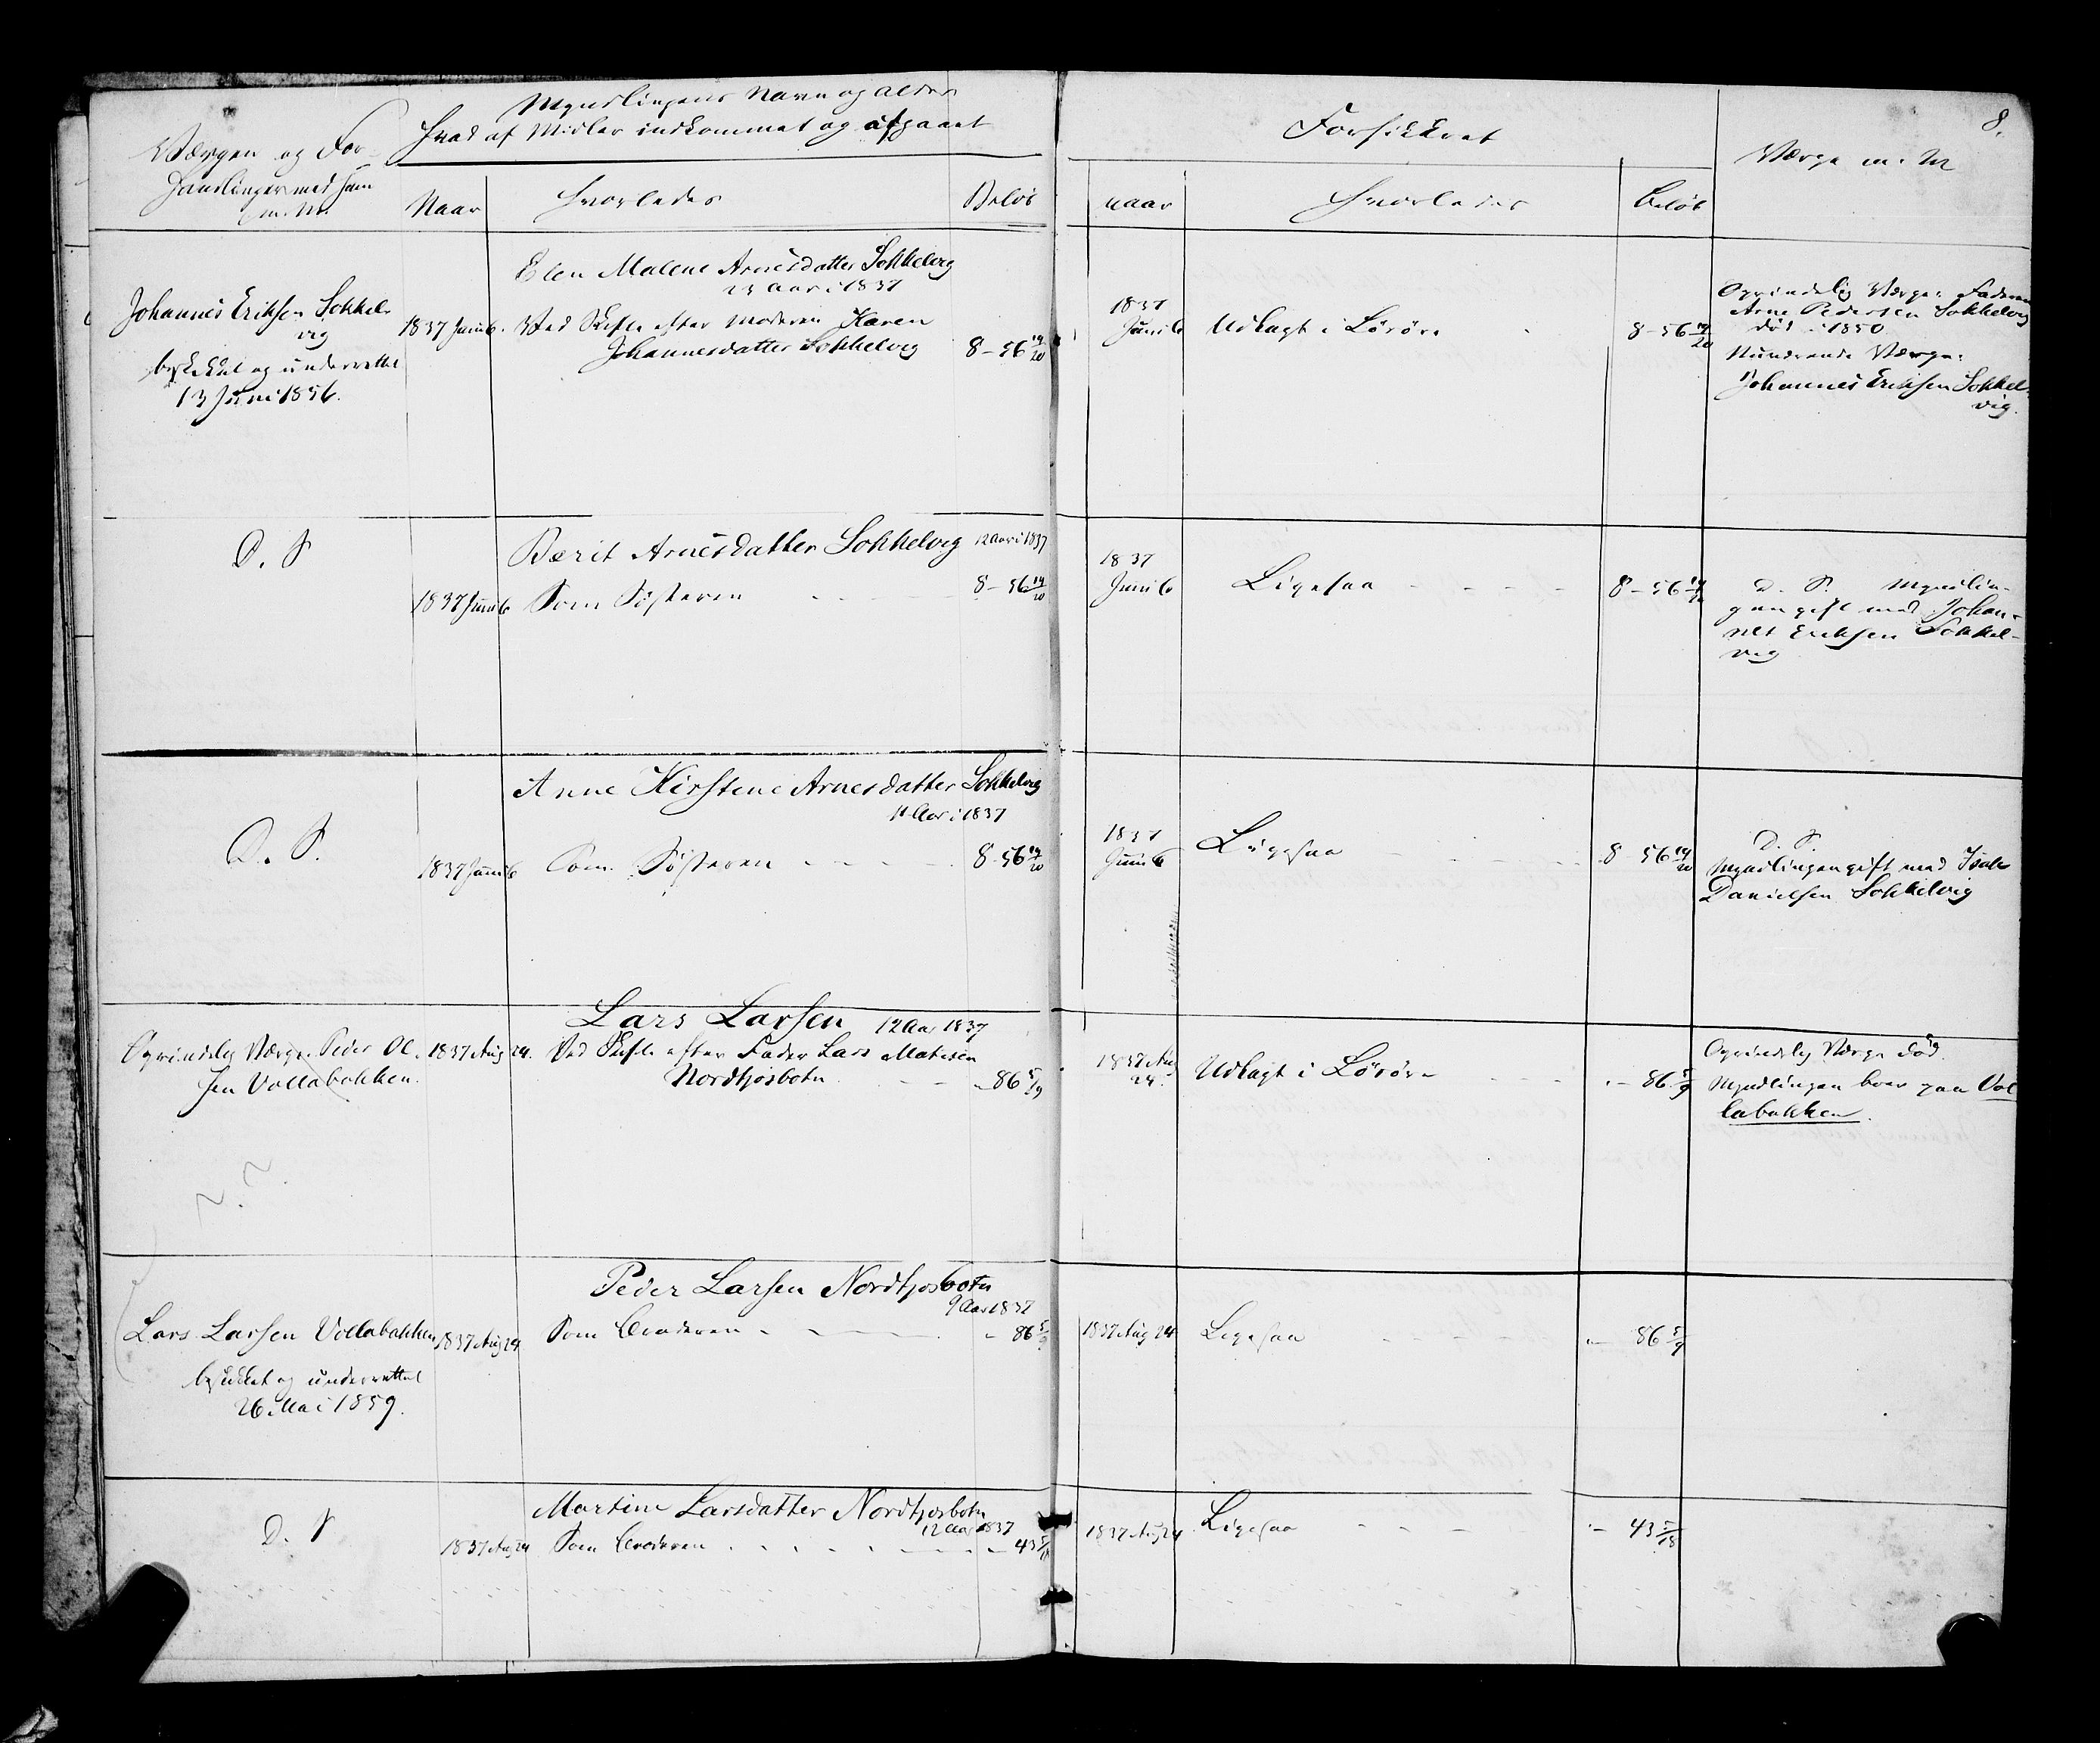 8.
Værgen og For-
handlinger med ham
m. M.
Myndlingens Navn og Alder
Hvad af Midler indkommet og afgaaet
Naar
Hvorledes
Beløb
Forsikkret
naar
Hvorledes
Beløb
Værge m. M
Johannes Eriksen Sokkel-
vig
beskikket og underrettet
13 Juni 1856.
Elen Malene Arnesdatter Sokkelvig
23 Aar i 1837
1837 Juni 6. Ved Skifte efter Moderen Karen
Johannesdatter Sokkelvig 8-56 19/20
1837
Juni 6 Udlagt i Løsøre 8-56 19/20
Oprindelig Værge: Faderen
Arne Pedersen Sokkelvig
død i 1850.
Nuværende Værge:
Johannes Eriksen Sokkel-
vig.
D. S
Berit Arnesdatter Sokkelvig 12 Aar i 1837
1837 Juni 6 Som Søsteren 8-56 19/20
1837
Juni 6 Ligesaa 8-56 19/20
D. S. Myndlin-
gen gift med Johan-
nes Eriksen Sokkel-
vig
D. S.
Anne Kirstene Arnesdatter Sokkelvig
11 Aar i 1837
1837 Juni 6 Som Søsteren 8-56 19/20
1837
Juni 6 Ligesaa 8 56 19/20
D. S.
Myndlingen gift med Isak
Danielsen Sokkelvig
Lars Larsen 12 Aar 1837
Oprindelig Værge Peder Ol-
sen Vollabakken.
1837 Aug 24. Ved Skifte efter Fader Lars Mathisen
Nordkjosbotn - 86 5/9
1837 Aug
24. Udlagt i Løsøre - 86 5/9
Oprindelig Værge død.
Myndlingen boer paa Vol
labakken.
Peder Larsen Nordkjosbotn
9 Aar 1837
Lars Larsen Vollabakken
beskikket og underrettet
26 Mai 1859.
1837 Aug 24 Som Broderen - 86 5/9
1837 Aug 24 Ligesaa - 86 5/9
Martine Larsdatter Nordkjosbotn
12 Aar 1837
D. S
1837 Aug 24 Som Broderen - 43 5/18
1837 Aug 24 Ligesaa - 43 5/18